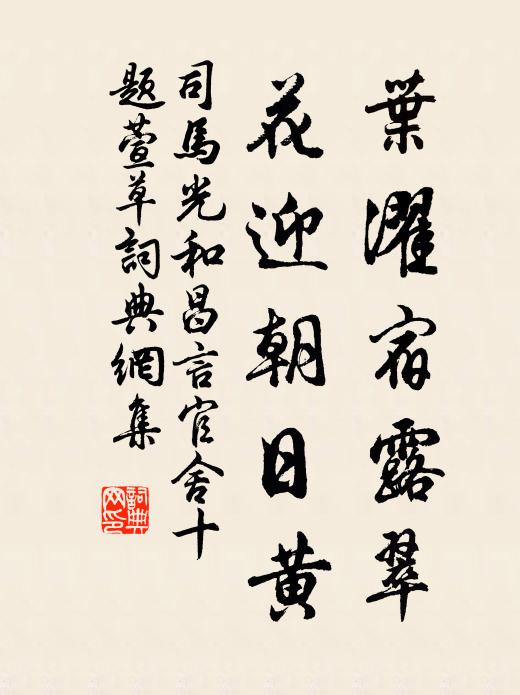 葉濯宿露翠
花迎朝日黄
司馬光和昌言官舍十
題萱草詞典網集
詞典
网印